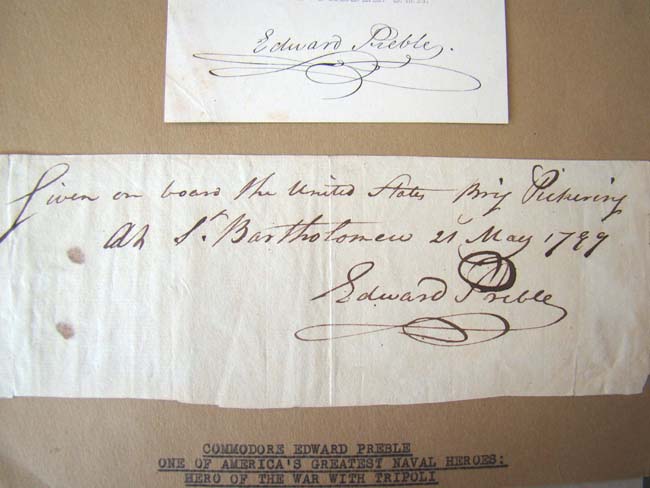 Edward Preble.
Given on board the United States Brig Pickering
At St Bartholomew 21 May 1799
Edward Preble
COMMODORE EDWARD PREBLE
ONE OF AMERICA'S GREATEST NAVAL HEROES:
HERO OF THE WAR WITH TRIPOLI